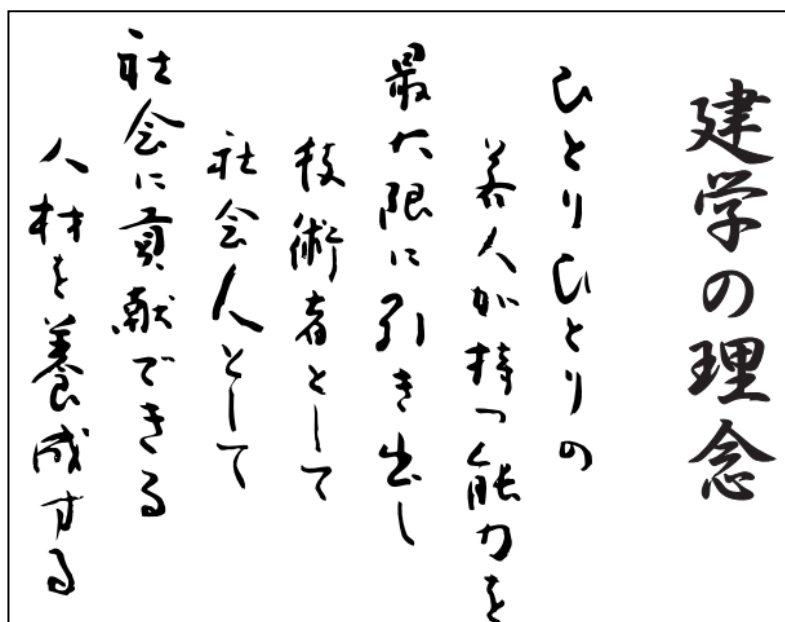 建学の理念
ひとりひとりの
若人が持つ能力を
最大限に引き出し
技術者として
社会人として
社会に貢献できる
人材を養成する